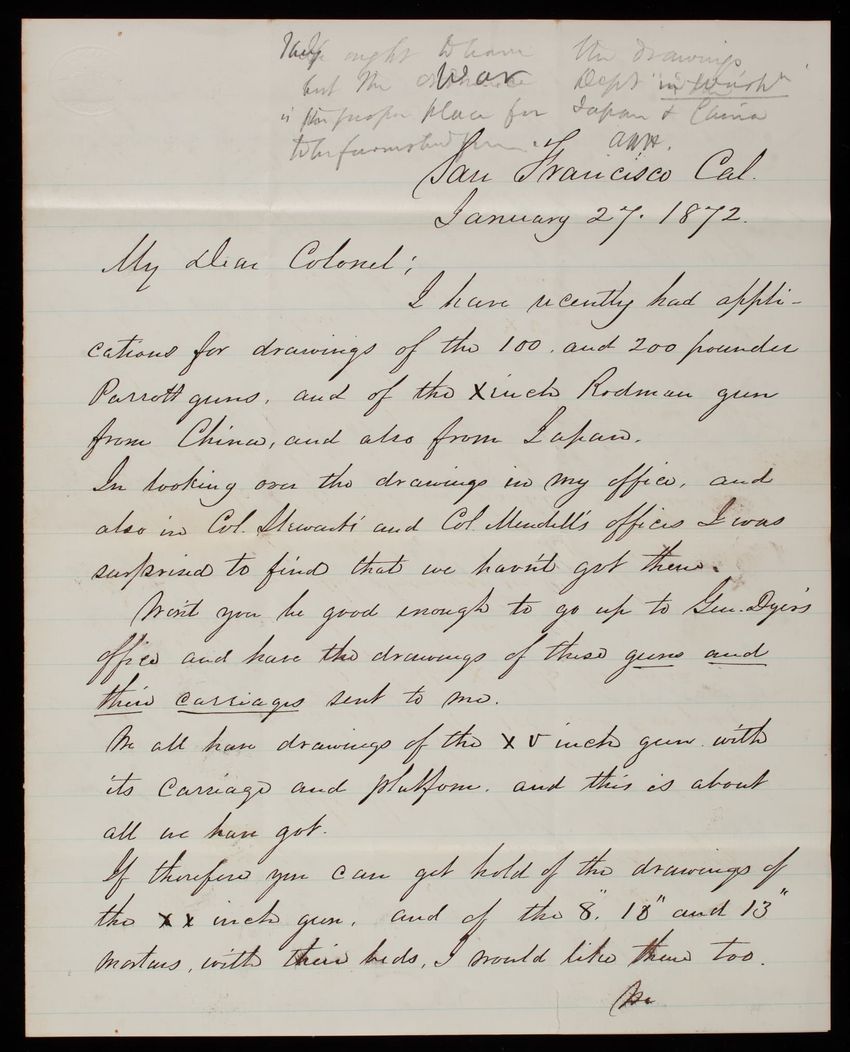 They ought to have the drawings
but the War Dept "in Wash"
is the proper place for Japan & China
to be furnished from.
San Francisco Cal.
January 27. 1872.
My Dear Colonel;
I have recently had appli-
cations for drawings of the 100. and 200 pounder
Parrott guns, and of the X inch Rodman gun
from China, and also from Japan.
In looking over the drawings in my office, and
also in Col. Stewart's and Col Mendell's offices I was
surprised to find that we havn't got them.
Won't you be good enough to go up to Gen. Dyer's
office and have the drawings of these guns and
their carriages sent to me.
We all have drawings of the XV inch gun with
its carriage and platform. and this is about
all we have got.
If therefore you can get hold of the drawings of
the XX inch gun, and of the 8", 10" and 13"
mortars, with their beds, I would like them too.